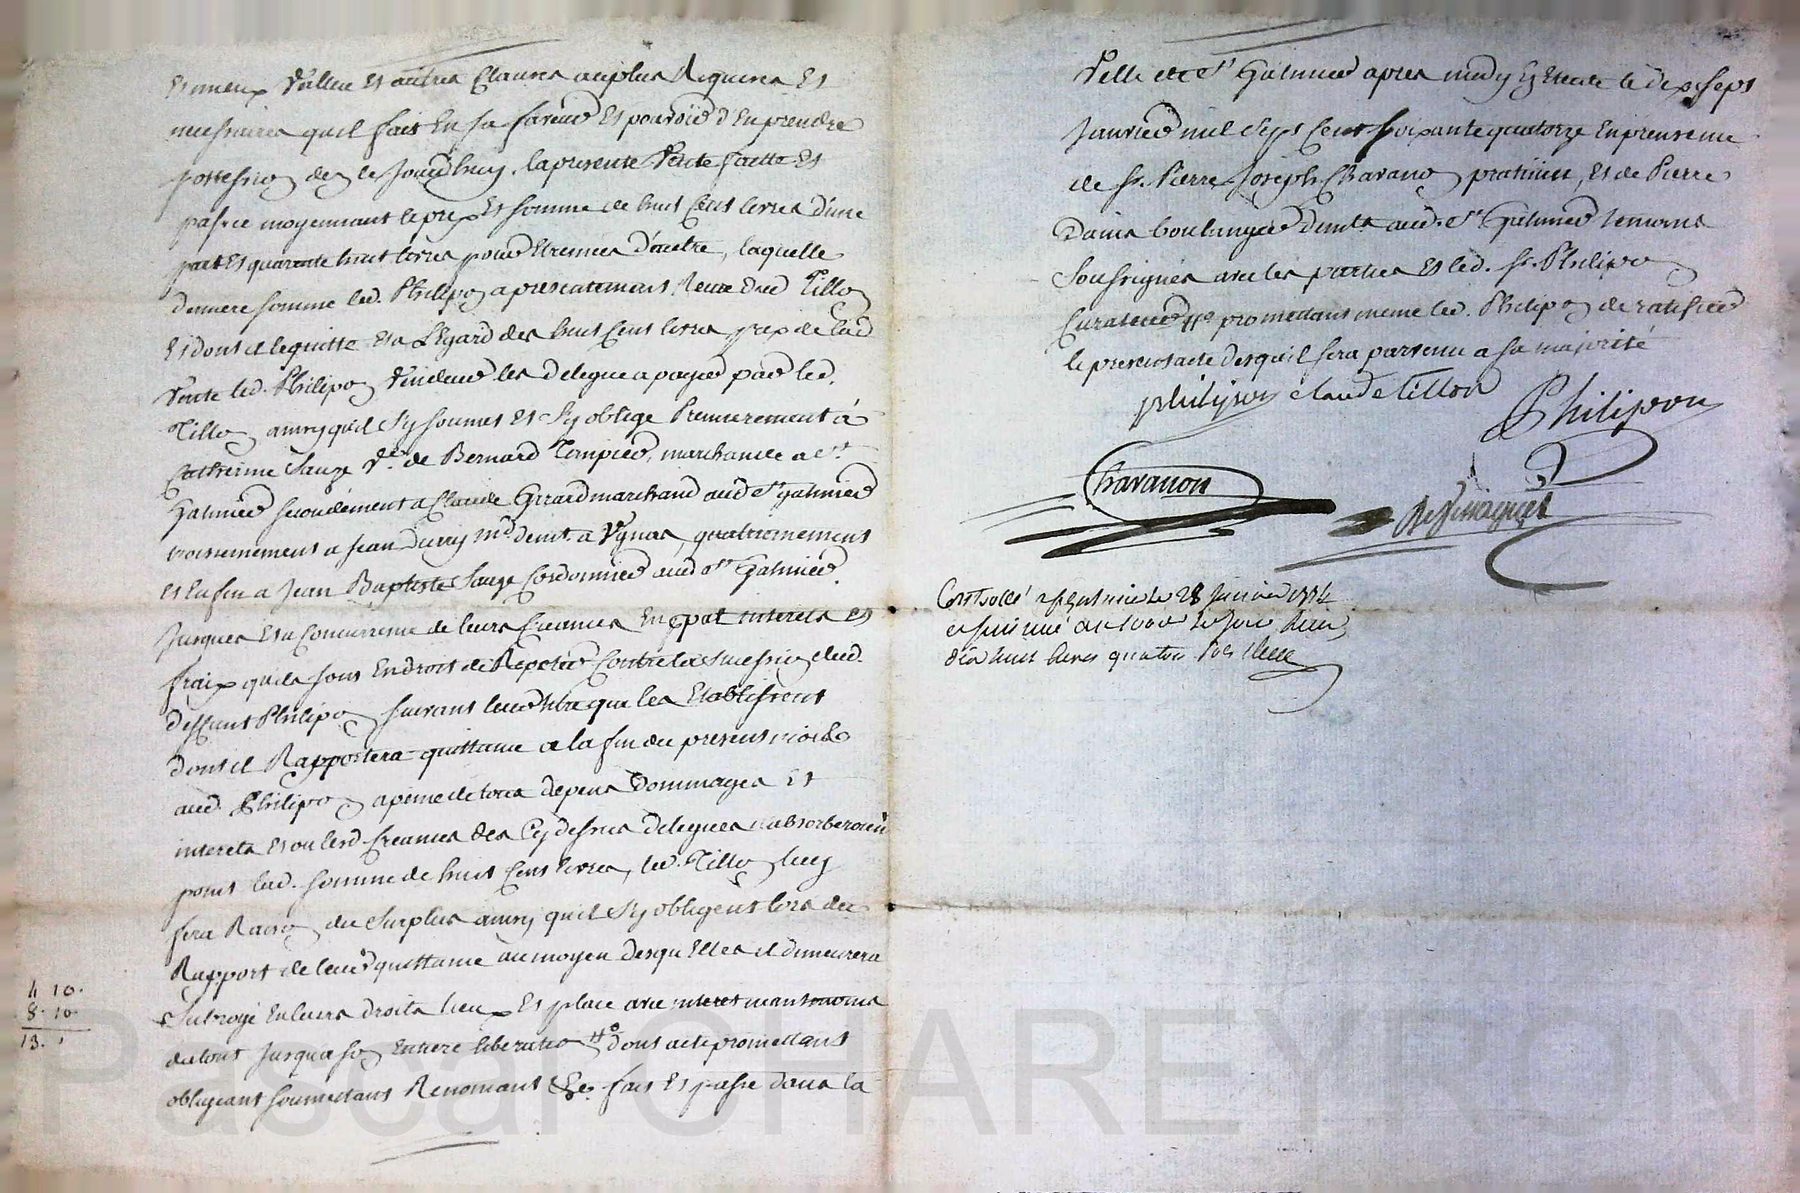 et mieux vallue et autres clauses au plus requises et
necessaires quil fait en sa faveur et pouvoir d'en prendre
possession dez ce jourdhuy. la presente vente faitte et
passée moyennant le prix et somme de huit cent livres d'une
part et quarente huit livres pour etrennes d'autre, laquelle
derniere somme led. Philipon a presentement reçue dud Tillon
et dont il le quitte et a l'Egard des huit cent livres prix de lad
vente led. Philipon vendeur les delegue a payer par led.
Tillon ainsy qu'il s'y soumet et s'y oblige Premierement à
Catherine Sauze Ve. de Bernard Tempier, marchande a St
Galmier secondement a Claude Girard marchand aud St galmier
troisiemement a jean Durry md demt a Vignas, quatriemement
et enfin a Jean Baptiste Sauze Cordonnier aud St Galmier.
jusques et a concurrence de leurs creances en cpal interets et
fraix quils sont en droit de Repeter contre la succession dud.
deffunt Philipon suivant leur titre que les Etablissent
dont il Rapportera quittance a la fin du present mois
aud. Philipon a peine de tous depens dommages et
interets et ou lesd. creances des cy dessus delegués n'absorberoien
point lad. somme de huit cent livres, led. Tillon luy
fera Raison du surplus ainsy quil s'y oblige lors du
Rapport de leur quittance au moyen desquelles il demeurera
subrogé en leurs droits lieux et place avec interet maintenons
du tout jusqua son entiere liberation dont acte promettant
obligeant soumettant Renonçant &c. fait et passé dans la
4 10.
8. 10
13. 1
Ville de St Galmier apres midy en Etude le dix sept
janvier mil sept cent soixante quatorze en presence
de sr. Pierre Joseph Chavanon praticien, et de Pierre
Dains boulanger demts aud. St Galmier temoins
soussignés avec les parties et led. sr. Philipon
curateur promettant meme led. Philipon de ratifier
le present acte des quil sera parvenu a sa majorité
philipon claude tillon Philipon
Chavanon
Controllé a St galmier le 28 janvier 1774